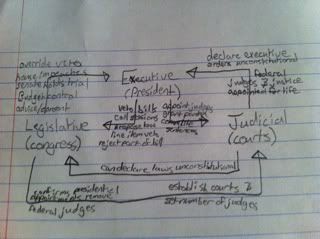 override veto
house impeaches
senate holds trial
budget control
advice/consent
declare executive
orders unconstitutional
Executive
(President)
federal
judges & justice
appointed for life
veto bills
call sessions
propose laws
line item veto
reject part of bill
appoint judges
grant pardons
Legislative
(congress)
Judicial
(courts)
can declare laws unconstitutional
confirms presidential
appointments remove
federal judges
establish courts &
set number of judges